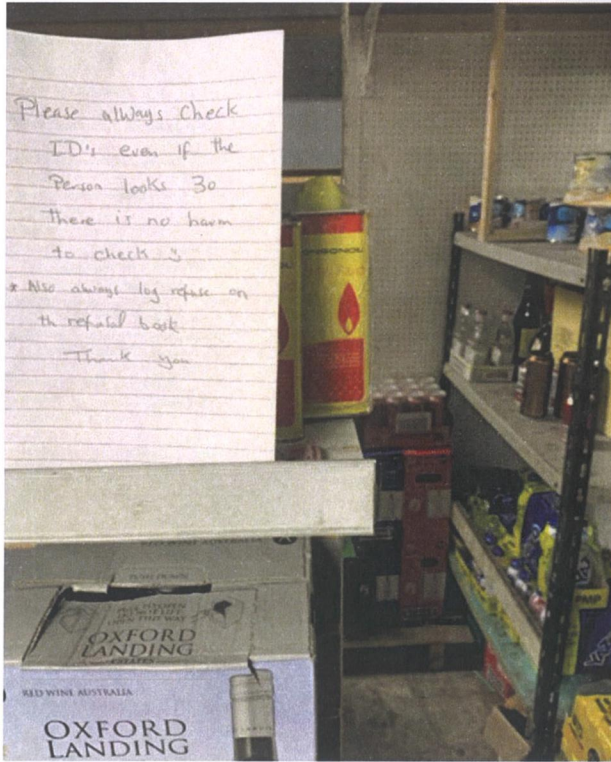 Please always check
ID's even if the
Person looks 30
there is no harm
to check
* Also always log refuse on
th refusal book
Thank you
RED WINE AUSTRALIA
OXFORD
LANDING
ESTATES
RED WINE AUSTRALIA
OXFORD
LANDING
PMP